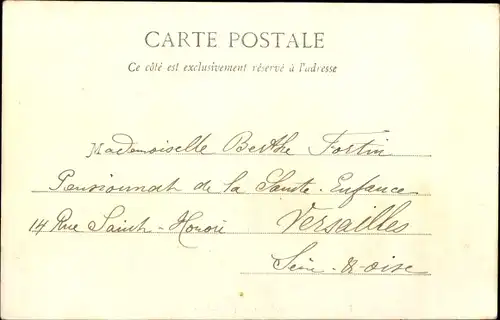 CARTE POSTALE
Ce côté est exclusivement réservé à l'adresse
Mademoiselle Berthe Fortin
Pensionnat de la Sainte-Enfance
14 Rue Saint-Honoré Versailles
Seine-&-Oise